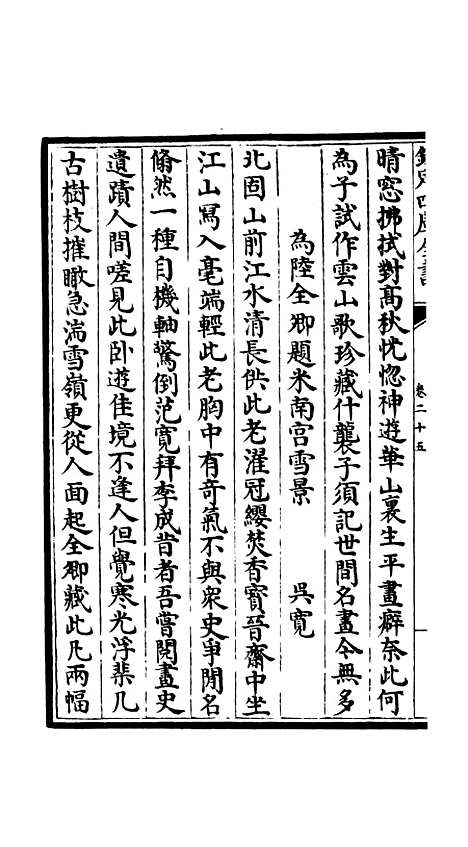 欽定四庫全書
卷二十五
晴窓拂拭對髙秋怳惚神遊華山裏生平畫癖奈此何
為子試作雲山歌珍藏什襲子須記世間名畫今無多
為陸全卿題米南宫雪景　吳寛
北固山前江水清長供此老濯冠纓焚香寳晉齋中坐
江山寫入毫端輕此老胸中有竒氣不與衆史爭閒名
翛然一種自機軸驚倒范寛拜李成昔者吾嘗閱畫史
遺蹟人間嗟見此卧遊佳境不逢人但覺寒光浮棐几
古樹枝摧瞰急湍雪嶺更從人面起全卿藏此凡兩幅